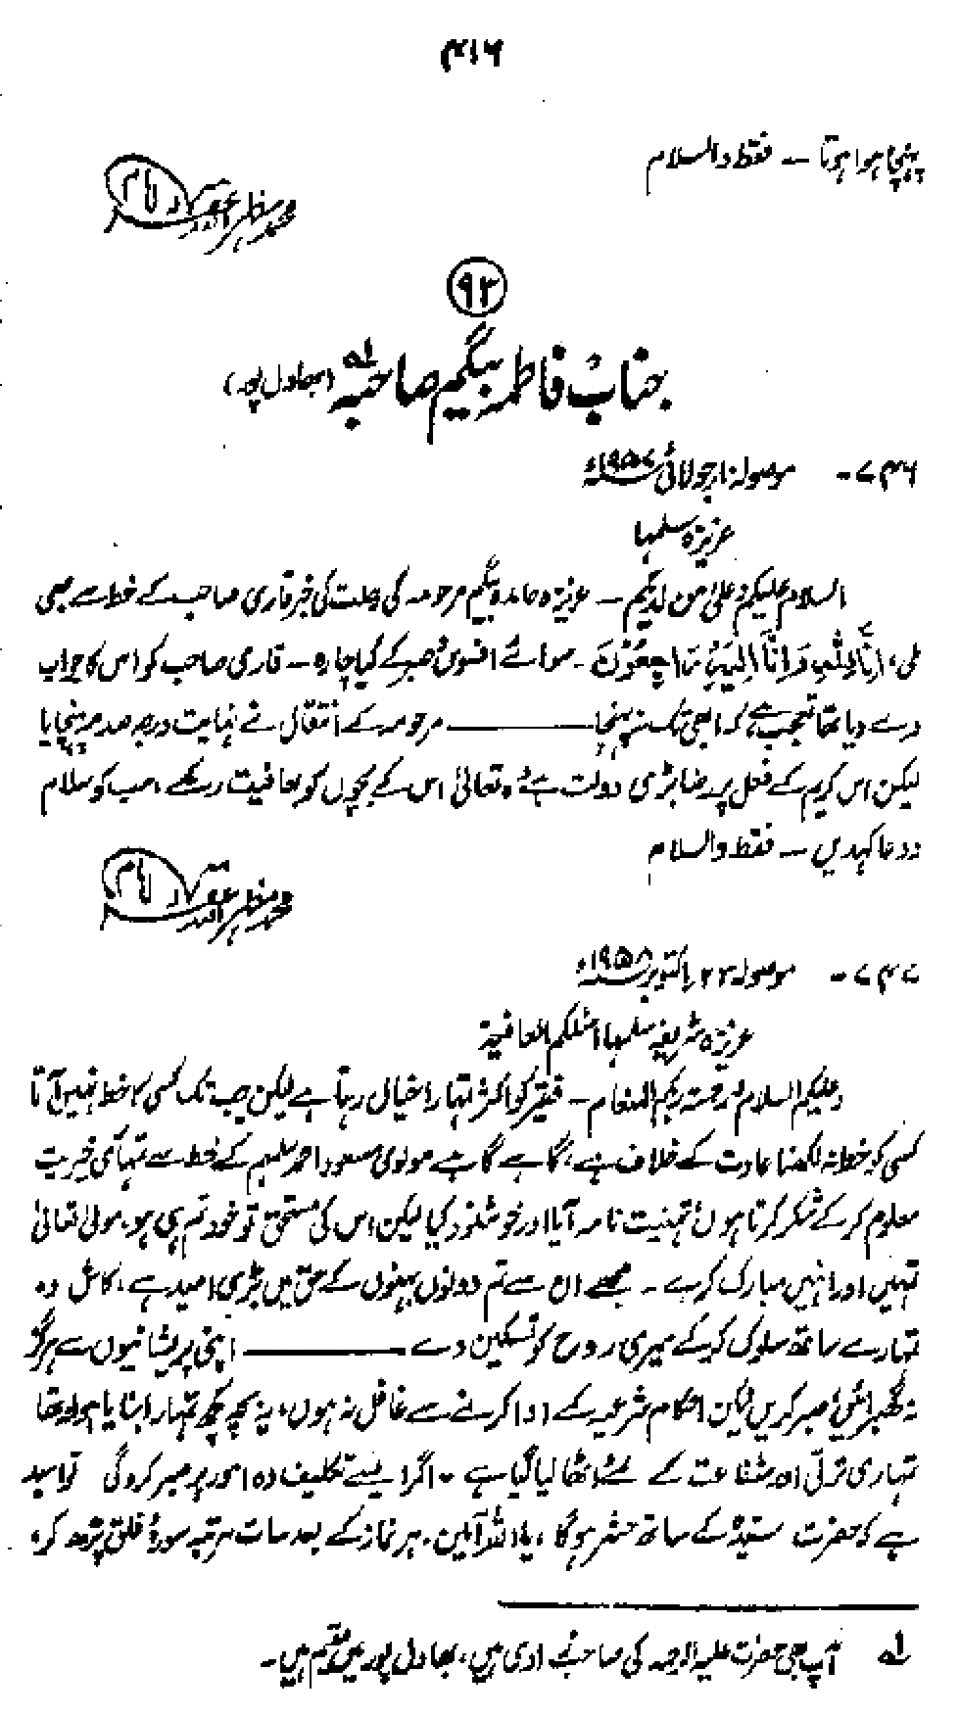 ۴۱۶
پہنچا ہوا ہوتا — فقط والسلام
محمد مظہر اللہ
۹۳
جناب فاطمہ بیگم صاحبہ لہ (بھاولپور)
۷۴۶ - موصولہ ۱۰ جولائی ۱۹۵۷ء
عزیزہ سلمہا
السلام علیکم وعلیٰ من لدیکم — عزیزہ حامدہ بیگم مرحومہ کی رحلت کی خبر قاری صاحب کے خط سے بھی
ملی، اِنَّا لِلّٰہِ وَاِنَّا اِلَیْہِ رَاجِعُوْنَ ۔ سوائے افسوس و صبر کے کیا چارہ — قاری صاحب کو اس کا جواب
دے دیا تھا تعجب ہے کہ ابھی تک نہ پہنچا ——— مرحومہ کے انتقال نے نہایت درجہ صدمہ پہنچایا
لیکن اس کریم کے فعل پر رضا بڑی دولت ہے، تعالیٰ اس کے بچوں کو بعافیت رکھے، سب کو سلام
و دعا کہدیں — فقط والسلام
محمد مظہر اللہ
۷۴۷ - موصولہ ۲۳ اکتوبر ۱۹۵۸ء
عزیزہ شریفہ سلمہا
وعلیکم السلام ورحمۃ ربکم المنعام — فقیر کو اکثر تمہارا خیال رہتا ہے لیکن جب تک کسی کا خط نہیں آتا
کسی کو خط نہ لکھنا عادت کے خلاف ہے، گاہے گاہے مولوی مسعود احمد سلمہم کے خط سے تمہاری خیریت
معلوم کر کے شکر کرتا ہوں، تہنیت نامہ آیا اور خوشنود کیا لیکن اس کی مستحق تو خود تم ہی ہو، مولیٰ تعالیٰ
تمہیں اور انہیں مبارک کرے ۔ مجھے ان سے تم دونوں بہنوں کے حق میں بڑی امید ہے، کاش وہ
تمہارے ساتھ سلوک کر کے میری روح کو تسکین دے ——— اپنی پریشانیوں سے ہرگز
نہ گھبرائیں، صبر کریں لیکن احکام شرعیہ کے ادا کرنے سے غافل نہ ہوں، یہ بچہ کچھ تمہارا بنایا ہوا تھا
تمہاری ترقی اور شفاعت کے لئے اٹھا لیا گیا ہے ۔ اگر ایسے تکلیف دہ امور پر صبر کرو گی تو امید
ہے کہ حضرت سیدہؓ کے ساتھ حشر ہوگا، یا اللہ آمین ۔ ہر نماز کے بعد سات مرتبہ سورۂ فلق پڑھ کر،
لہ آپ بھی حضرت علیہ الرحمہ کی صاحبزادی ہیں، بھاولپور میں مقیم ہیں ۔